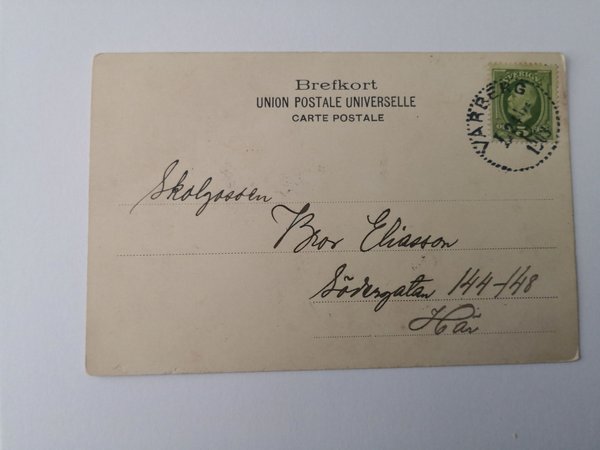 Brefkort
UNION POSTALE UNIVERSELLE
CARTE POSTALE
SVERIGE
VARBERG
Skolgossen
Bror Eliasson
Södergatan 144-148
Här